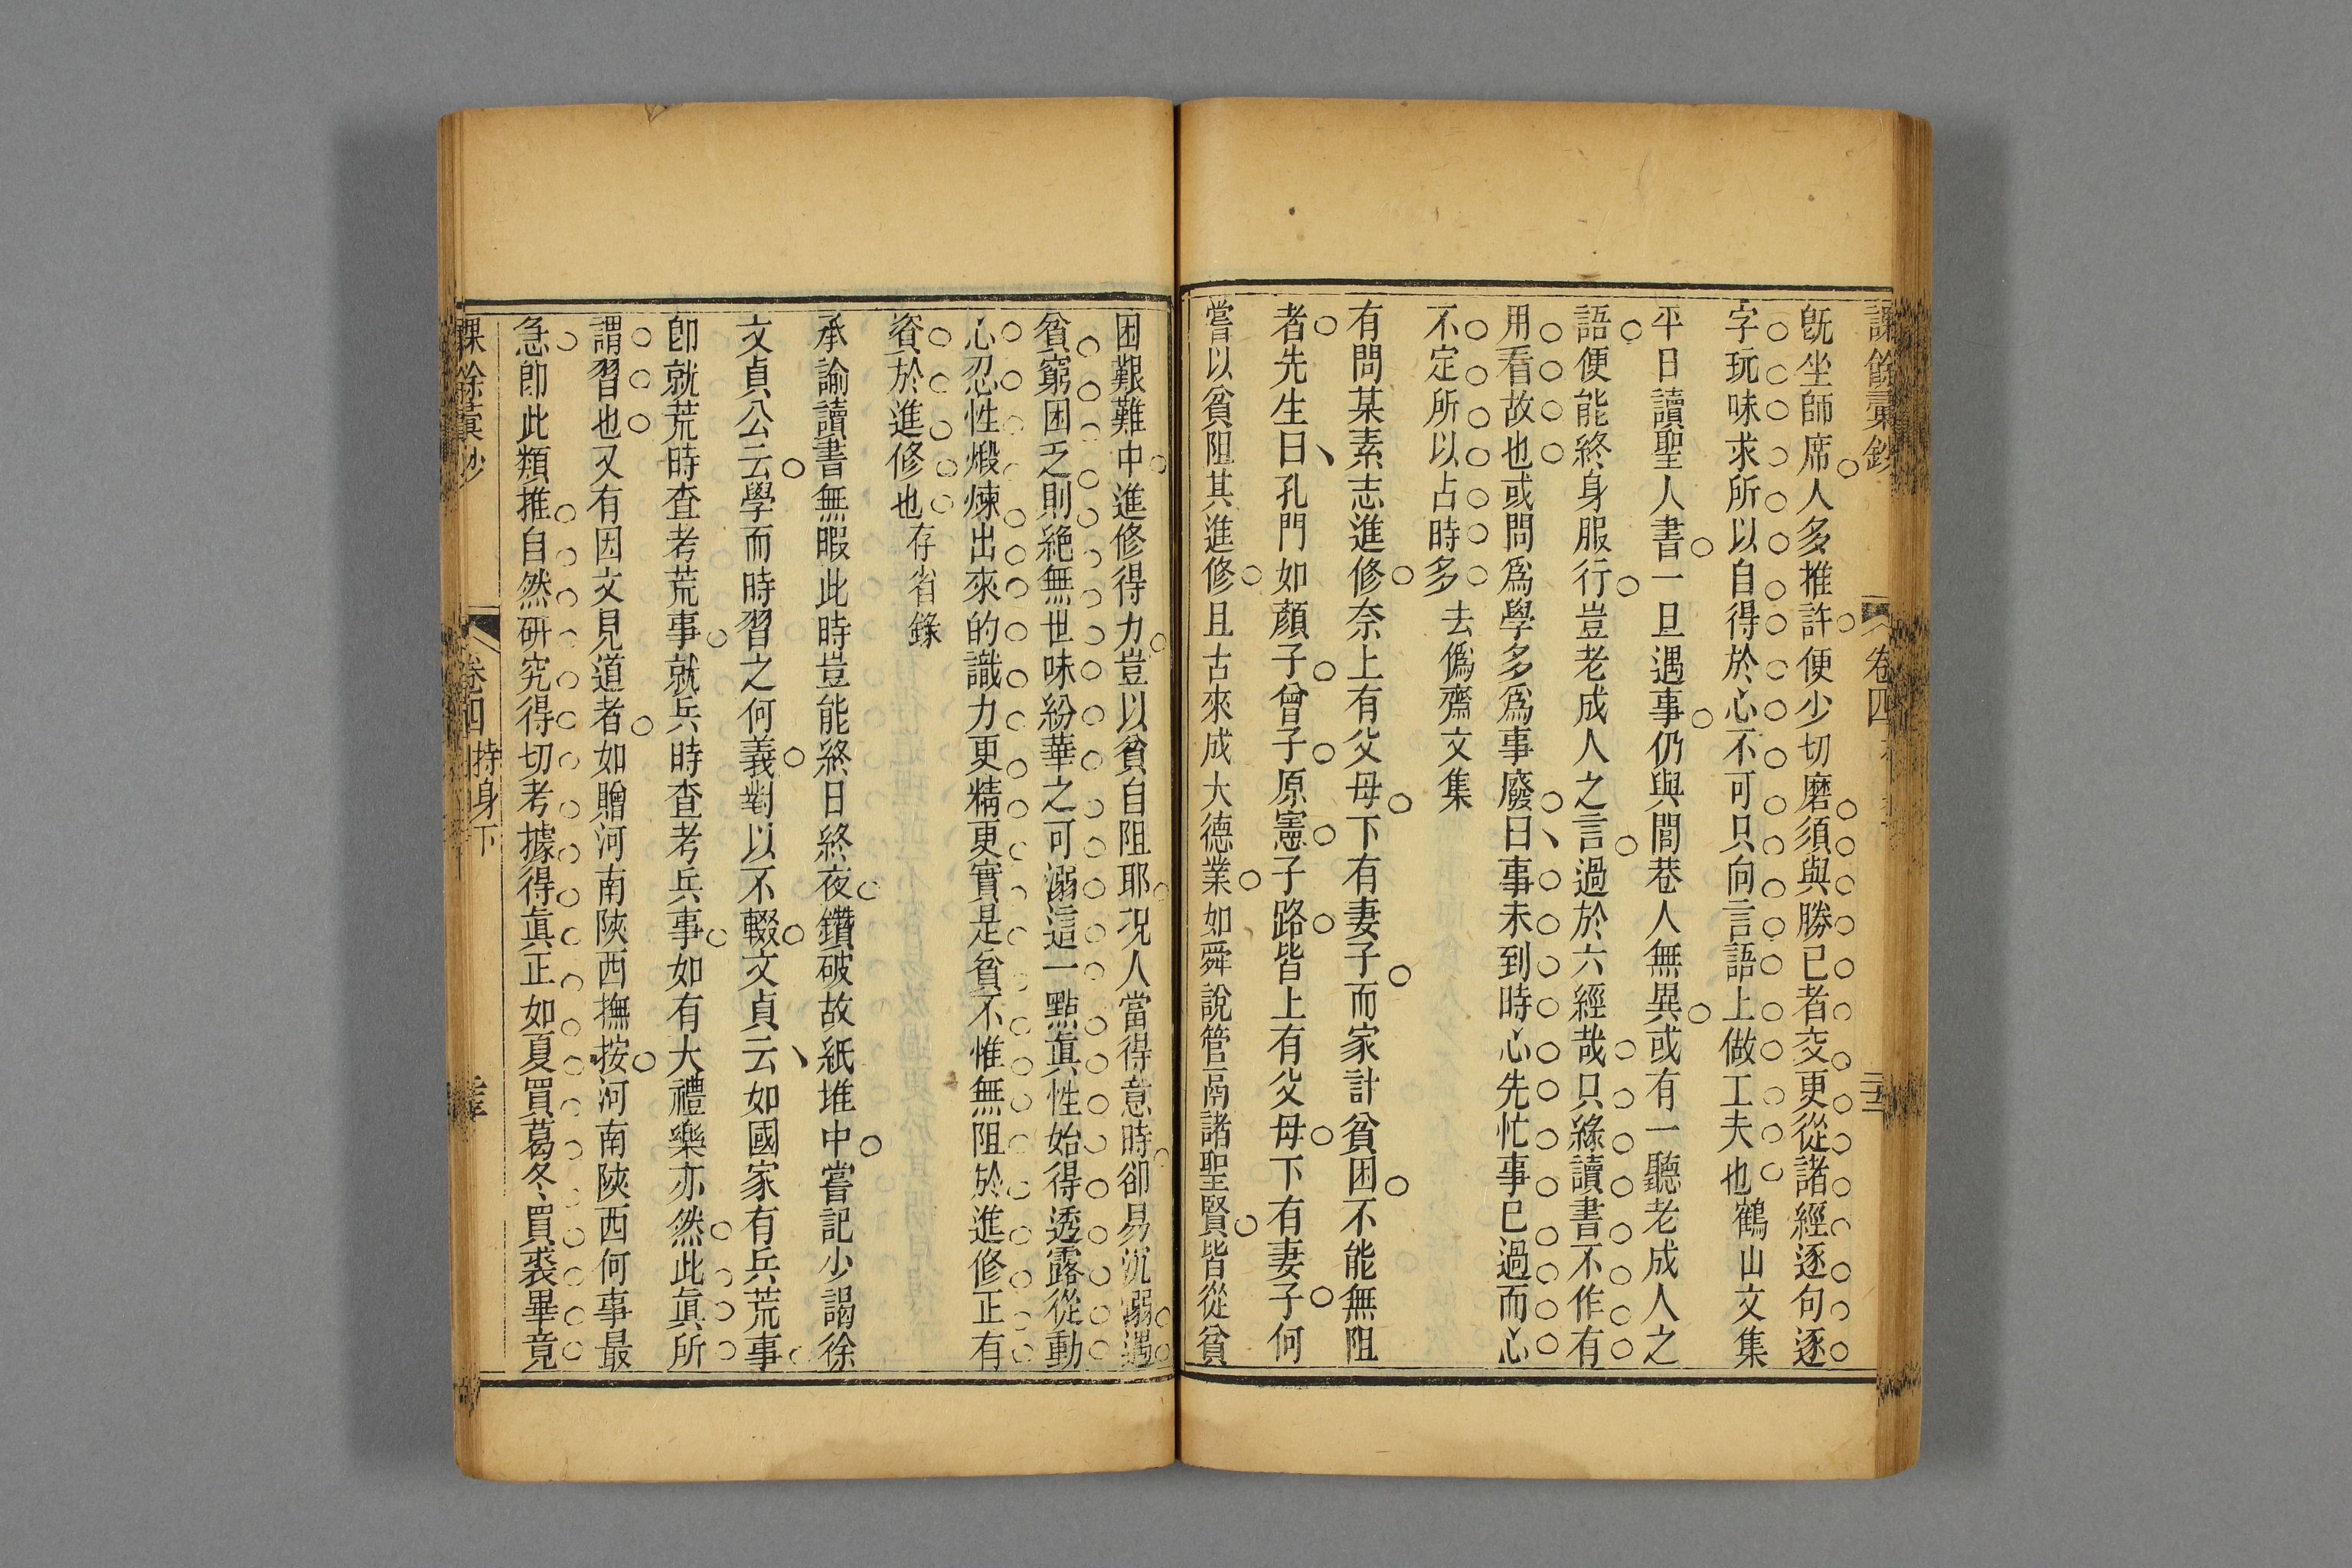 課餘彙鈔 卷四
旣坐師席人多推許便少切磨須與勝已者交更從諸經逐句逐
字玩味求所以自得於心不可只向言語上做工夫也鶴山文集
平日讀聖人書一旦遇事仍與閭巷人無異或有一聽老成人之
語便能終身服行豈老成人之言過於六經哉只緣讀書不作有
用看故也或問爲學多爲事廢曰事未到時心先忙事已過而心
不定所以占時多 去僞齋文集
有問某素志進修奈上有父母下有妻子而家計貧困不能無阻
者先生曰孔門如顏子曾子原憲子路皆上有父母下有妻子何
嘗以貧阻其進修且古來成大德業如舜說管鬲諸聖賢皆從貧
困艱難中進修得力豈以貧自阻耶況人當得意時卻易沉溺遇
貧窮困乏則絕無世味紛華之可溺這一點眞性始得透露從動
心忍性煅煉出來的識力更精更實是貧不惟無阻於進修正有
資於進修也存省錄
承諭讀書無暇此時豈能終日終夜鑽破故紙堆中嘗記少謁徐
文貞公云學而時習之何義對以不輟文貞云如國家有兵荒事
卽就荒時查考荒事就兵時查考兵事如有大禮樂亦然此眞所
謂習也又有因文見道者如贈河南陝西撫按河南陝西何事最
急卽此類推自然硏究得切考據得眞正如夏買葛冬買裘畢竟
課餘彙鈔 卷四 持身下